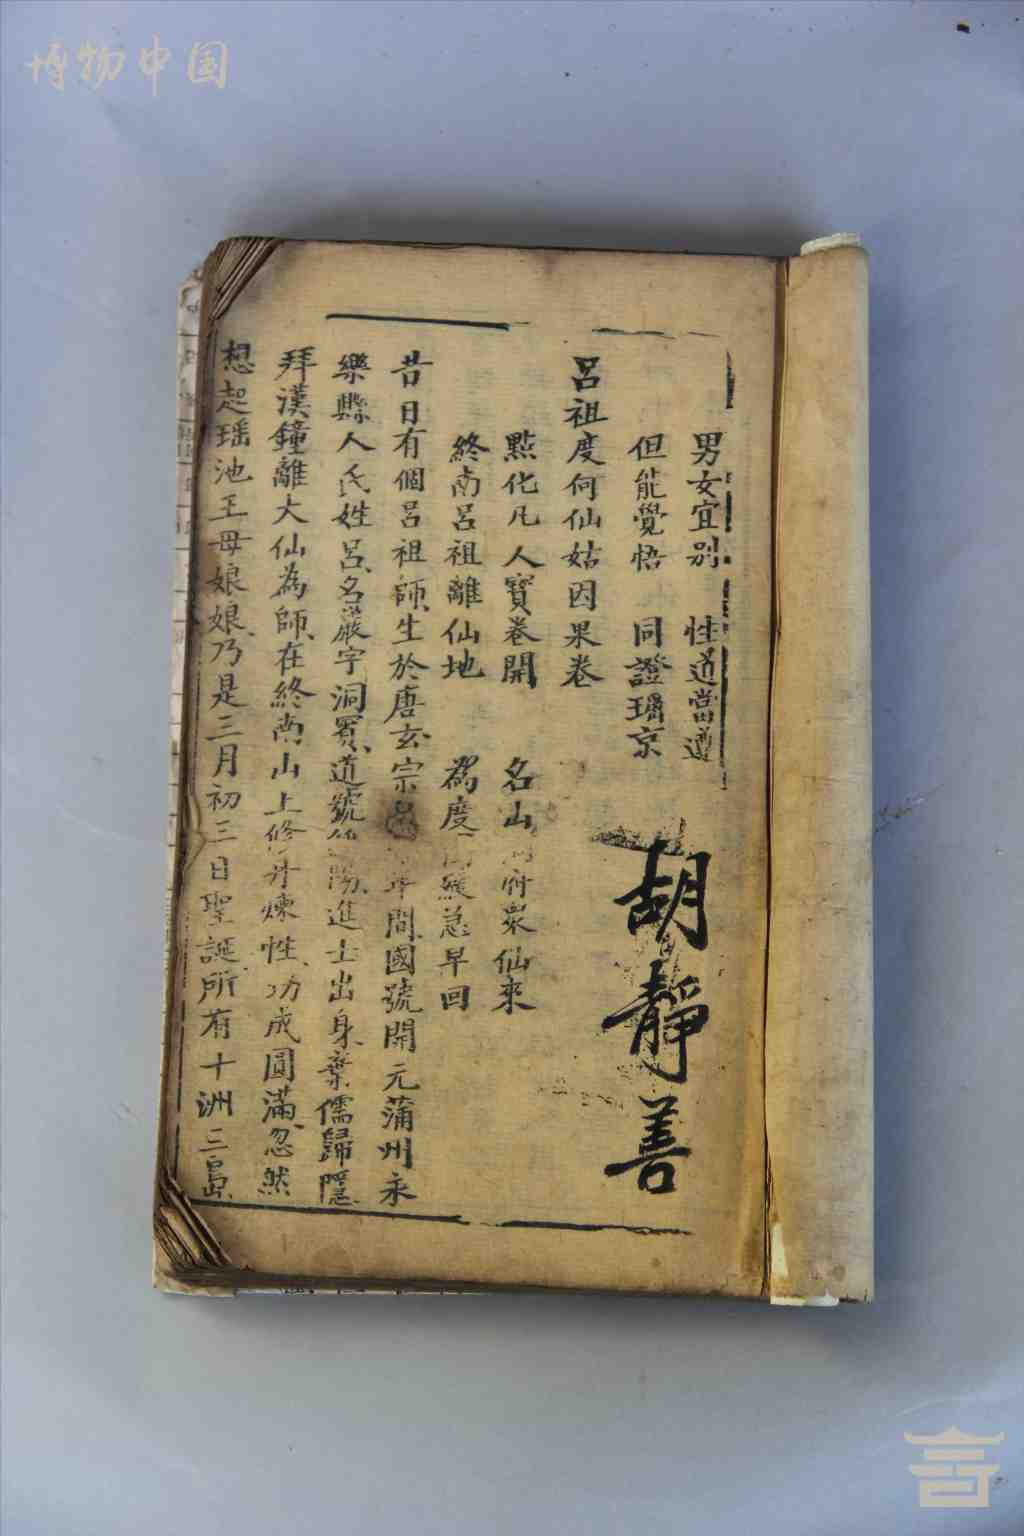 博物中国
男女宜別 性道當遵
但能覺悟 同證瑤京
呂祖度何仙姑因果卷
點化凡人寶卷開 名山洞府眾仙來
終南呂祖離仙地 為度 緩急早回
昔日有個呂祖師生於唐玄宗 年間國號開元蒲州永
樂縣人氏姓呂名巖字洞賓道號純陽進士出身棄儒歸隱
拜漢鐘離大仙為師在終南山上修丹煉性功成圓滿忽然
想起瑤池王母娘娘乃是三月初三日聖誕所有十洲三島
胡靜善